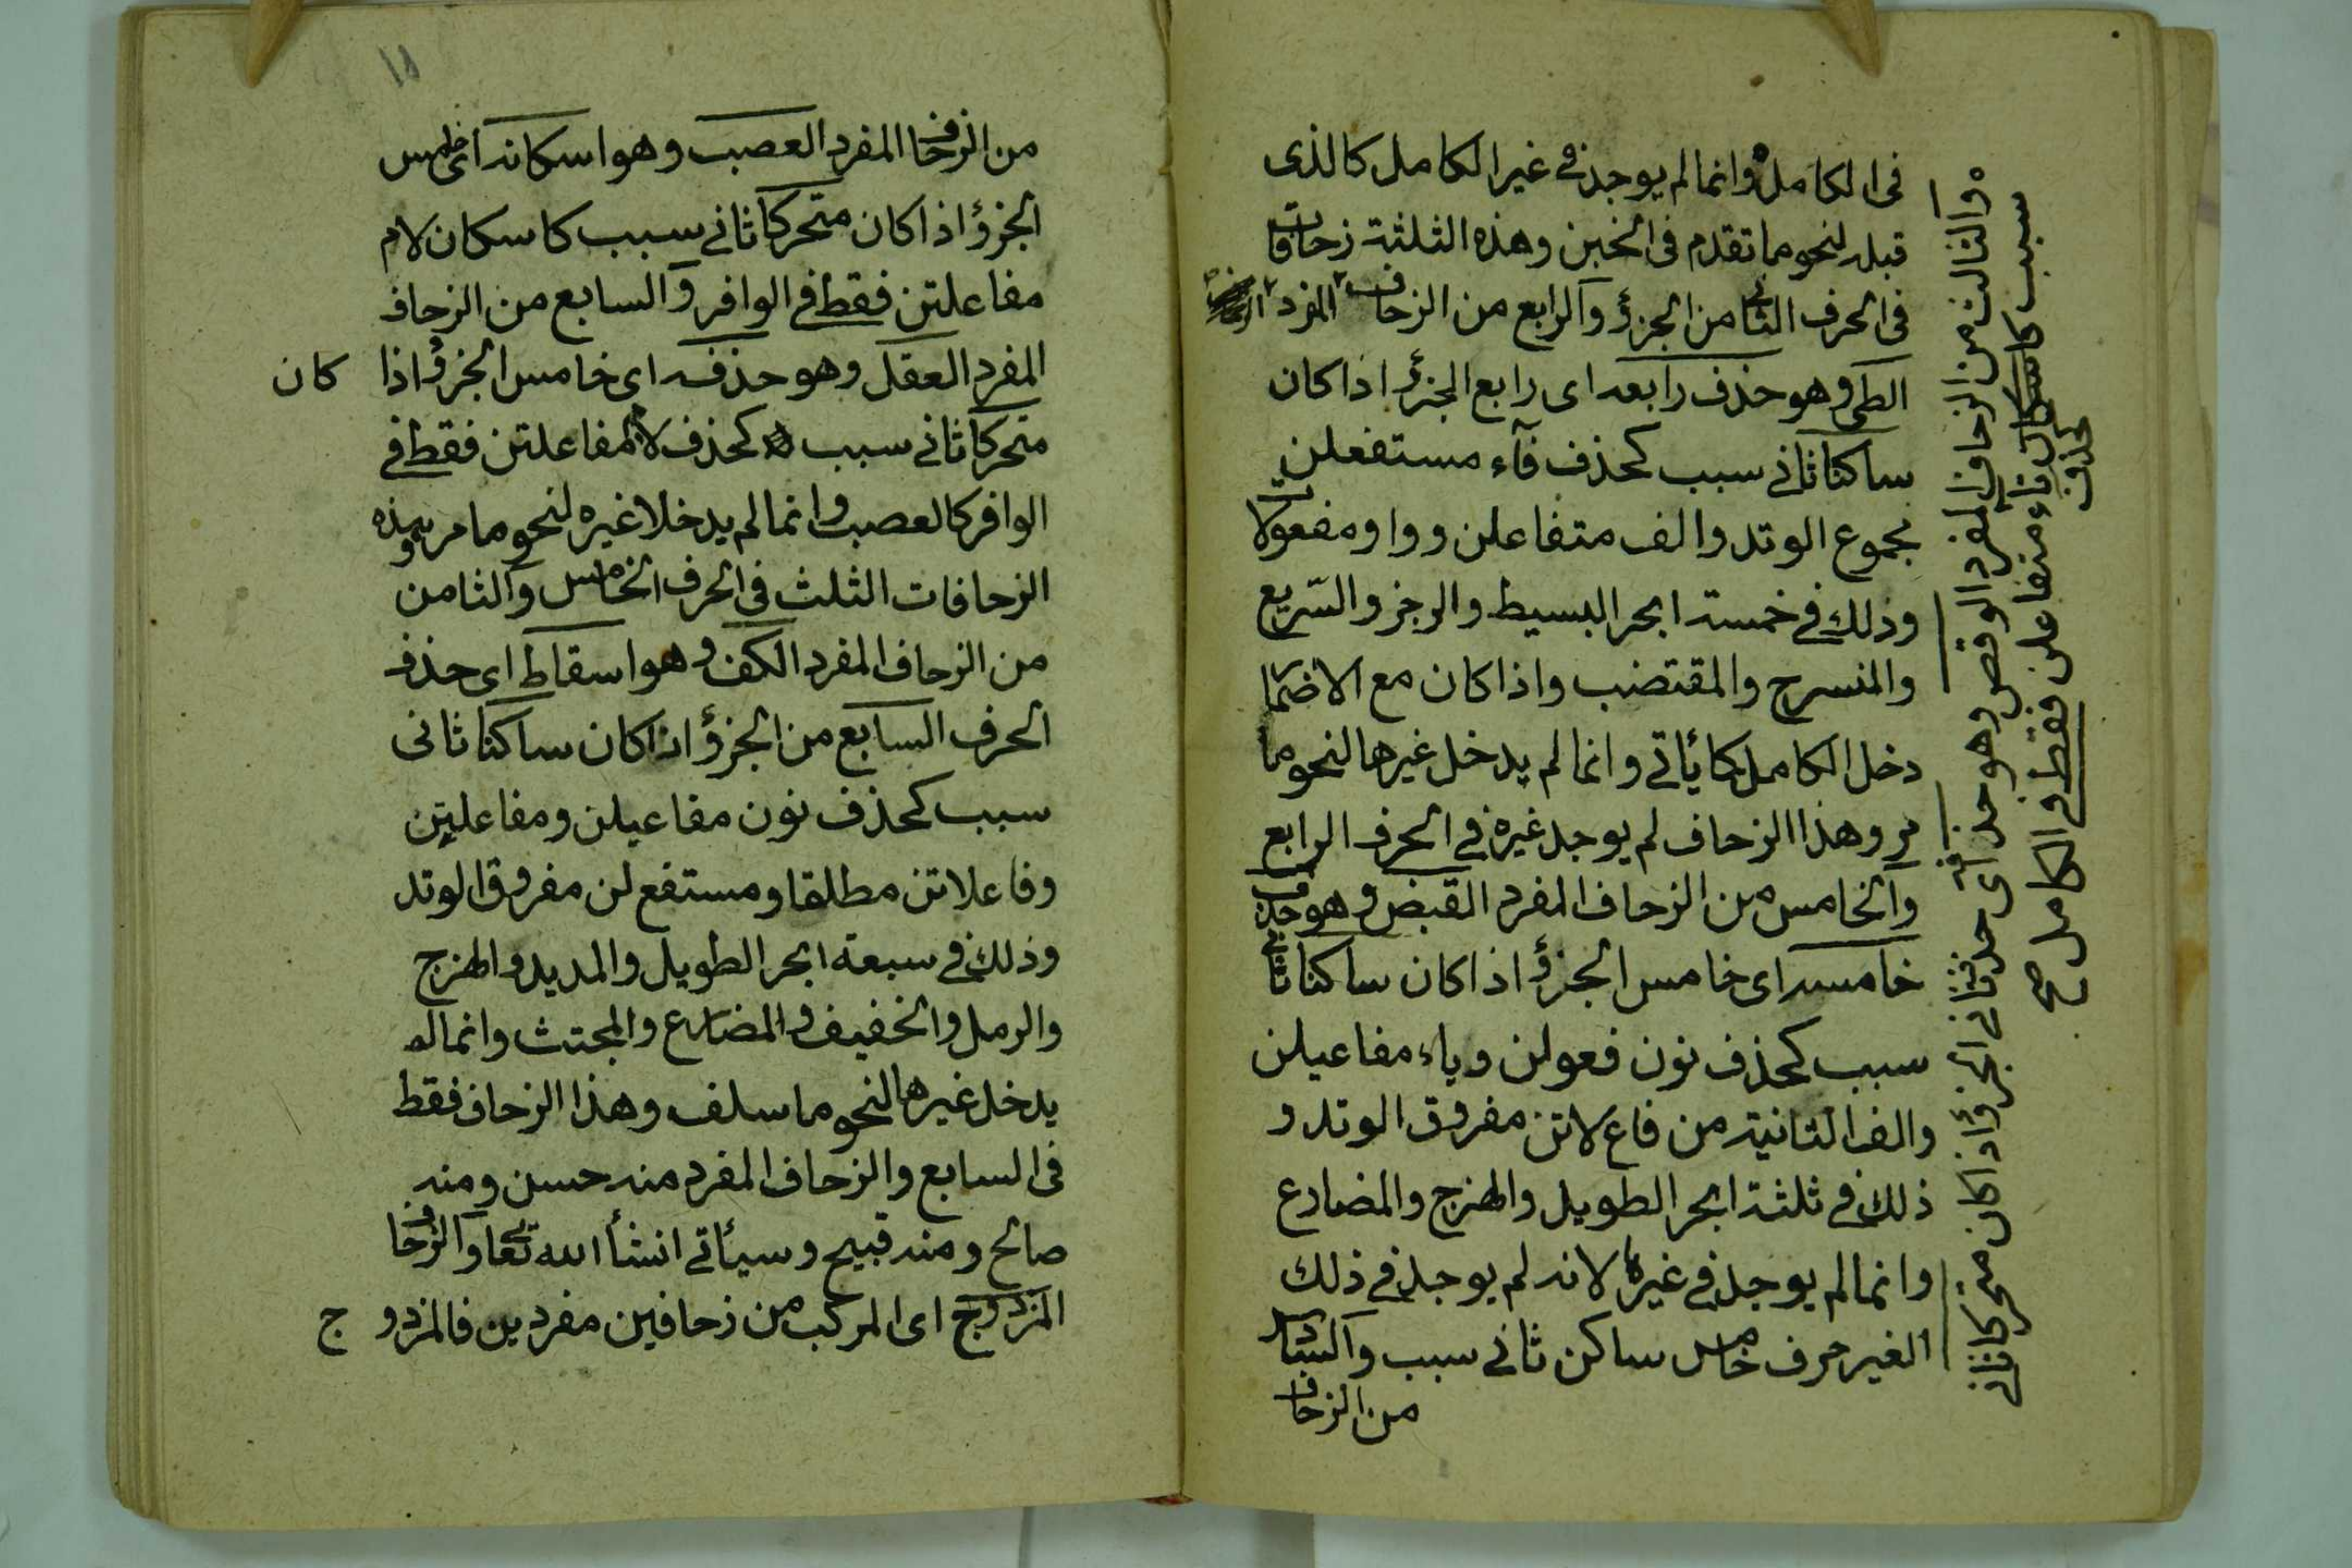 فى الكامل وانما لم يوجد فى غير الكامل كالذى
قبله لنحو ما تقدم فى الخبن وهذه الثلثة زحافات
فى الحرف الثانى من الجزؤ والرابع من الزحاف المفرد
الطى وهو حذف رابعه اى رابع الجزؤ اذا كان
ساكنا ثانى سبب كحذف فآء مستفعلن
مجموع الوتد والف متفاعلن وواو مفعولات
وذلك فى خمسة ابحر البسيط والرجز والسّريع
والمنسرح والمقتضب واذا كان مع الاضمار
دخل الكامل كما يأتى وانما لم يدخل غيرها لنحو ما
مر وهذا الزحاف لم يوجد غيره فى الحرف الرابع
والخامس من الزحاف المفرد القبض وهو حذف
خامسه اى خامس الجزؤ اذا كان ساكنا ثانى
سبب كحذف نون فعولن وياء مفاعيلن
والف الثانية من فاع لاتن مفروق الوتد و
ذلك فى ثلثة ابحر الطويل والهزج والمضارع
وانما لم يوجد فى غيرها لانه لم يوجد فى ذلك
الغير حرف خامس ساكن ثانى سبب والسادس
من الزحاف
والثالث من الزحاف المفرد الوقص وهو حذفه اى حذف ثانى الجزؤ اذا كان متحركا ثانى
سبب كاسكان تاء متفاعلن فقط فى الكامل صح
كحذف
من الزحاف المفرد العصب وهو اسكانه اى خامس
الجزؤ اذا كان متحركا ثانى سبب كاسكان لام
مفاعلتن فقط فى الوافر والسابع من الزحاف
المفرد العقل وهو حذفه اى خامس الجزؤ اذا كان
متحركا ثانى سبب كحذف لام مفاعلتن فقط فى
الوافر كالعصب وانما لم يدخلا غيره لنحو ما مر وهذه
الزحافات الثلث فى الحرف الخامس والثامن
من الزحاف المفرد الكف وهو اسقاط اى حذف
الحرف السابع من الجزؤ اذا كان ساكنا ثانى
سبب كحذف نون مفاعيلن ومفاعلتن
وفاعلاتن مطلقا ومستفع لن مفروق الوتد
وذلك فى سبعة ابحر الطويل والمديد والهزج
والرمل والخفيف والمضارع والمجتث وانما لم
يدخل غيرها لنحو ما سلف وهذا الزحاف فقط
فى السابع والزحاف المفرد منه حسن ومنه
صالح ومنه قبيح وسيأتى انشأ الله تعا والزحاف
المزدوج اى المركب من زحافين مفردين فالمزدوج